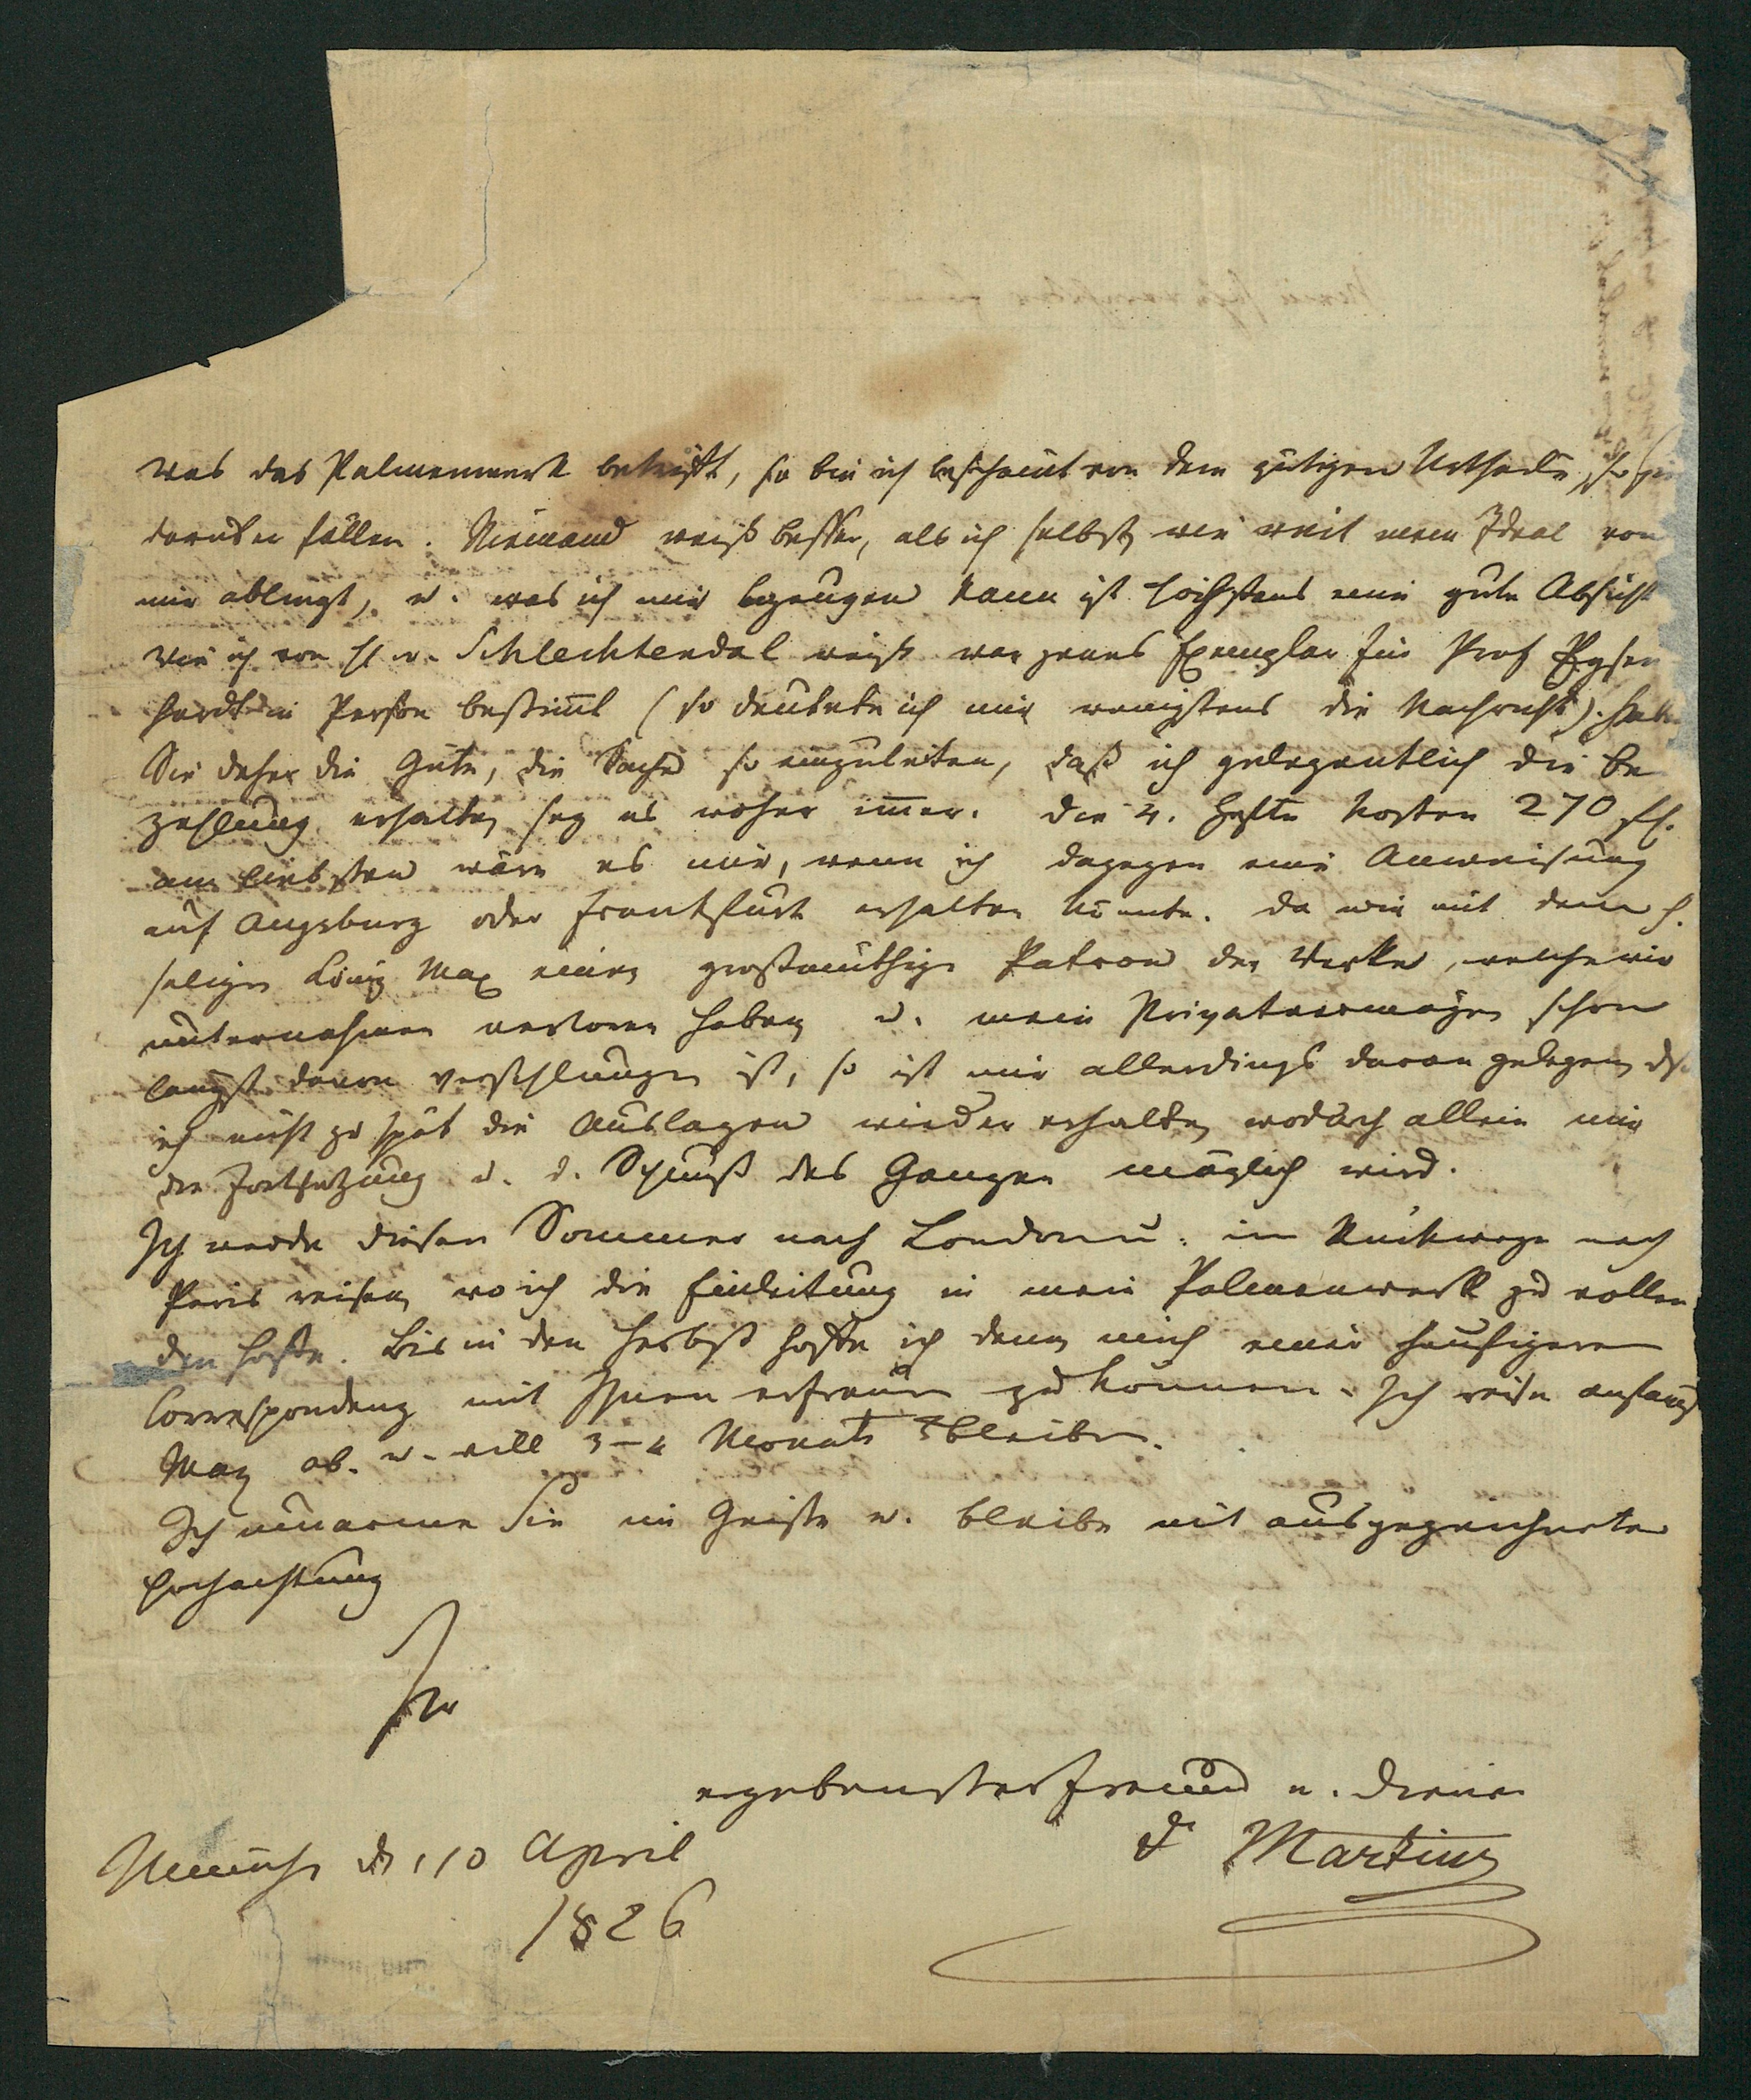 was das Palmenwerk betrifft, so bin ich beschämt von dem gütigen Urtheile, so Sie
darüber fällen. Niemand weiß besser, als ich selbst, wie weit mein Ideal von
mir abliegt, u. was ich mir bezeugen kann ist höchstens eine gute Absicht
Wie ich von H v. Schlechtendal weiß war jenes Exemplar für Prof Eysen
hardt in Person bestimt (so deutete ich mir wenigstens die Nachricht). Haben
Sie daher die Güte, die Sache so einzuleiten, daß ich gelegentlich die Be
zahlung erhalte, sey es woher imer. Die 4. Hefte kosten 270 fl.
am liebsten wäre es mir, wenn ich dagegen eine Anweisung
auf Augsburg oder Frankfurt erhalten könnte. Da wir mit dem h.
seligen König Max einen großmüthigen Patron der Werke, welche wir
unternahmen verloren haben, u. mein Privatvermögen schon
längst davon verschlungen ist, so ist mir allerdings daran gelegen, dß
ich nicht zu spät die Auslagen wieder erhalte, wodurch allein mir
die Fortsetzung u. d. Schluß des Ganzen möglich wird.
Ich werde diesen Sommer nach London u. im Rückwege nach
Paris reisen, wo ich die Einleitung in mein Palmenwerk zu vollen
den hoffe. Bis in den Herbst hoffe ich dann mich einer häufigeren
Correspondenz mit Ihnen erfreuen zu können. Ich reise anfangs
May ab. u. will 3–4 Monate bleiben.
Ich umarme Sie im Geiste u. bleibe mit ausgezeichneter
Hochachtung
Ihr
ergebenster Freund u. Diener
Dr Martius
München d. 10 April
1826